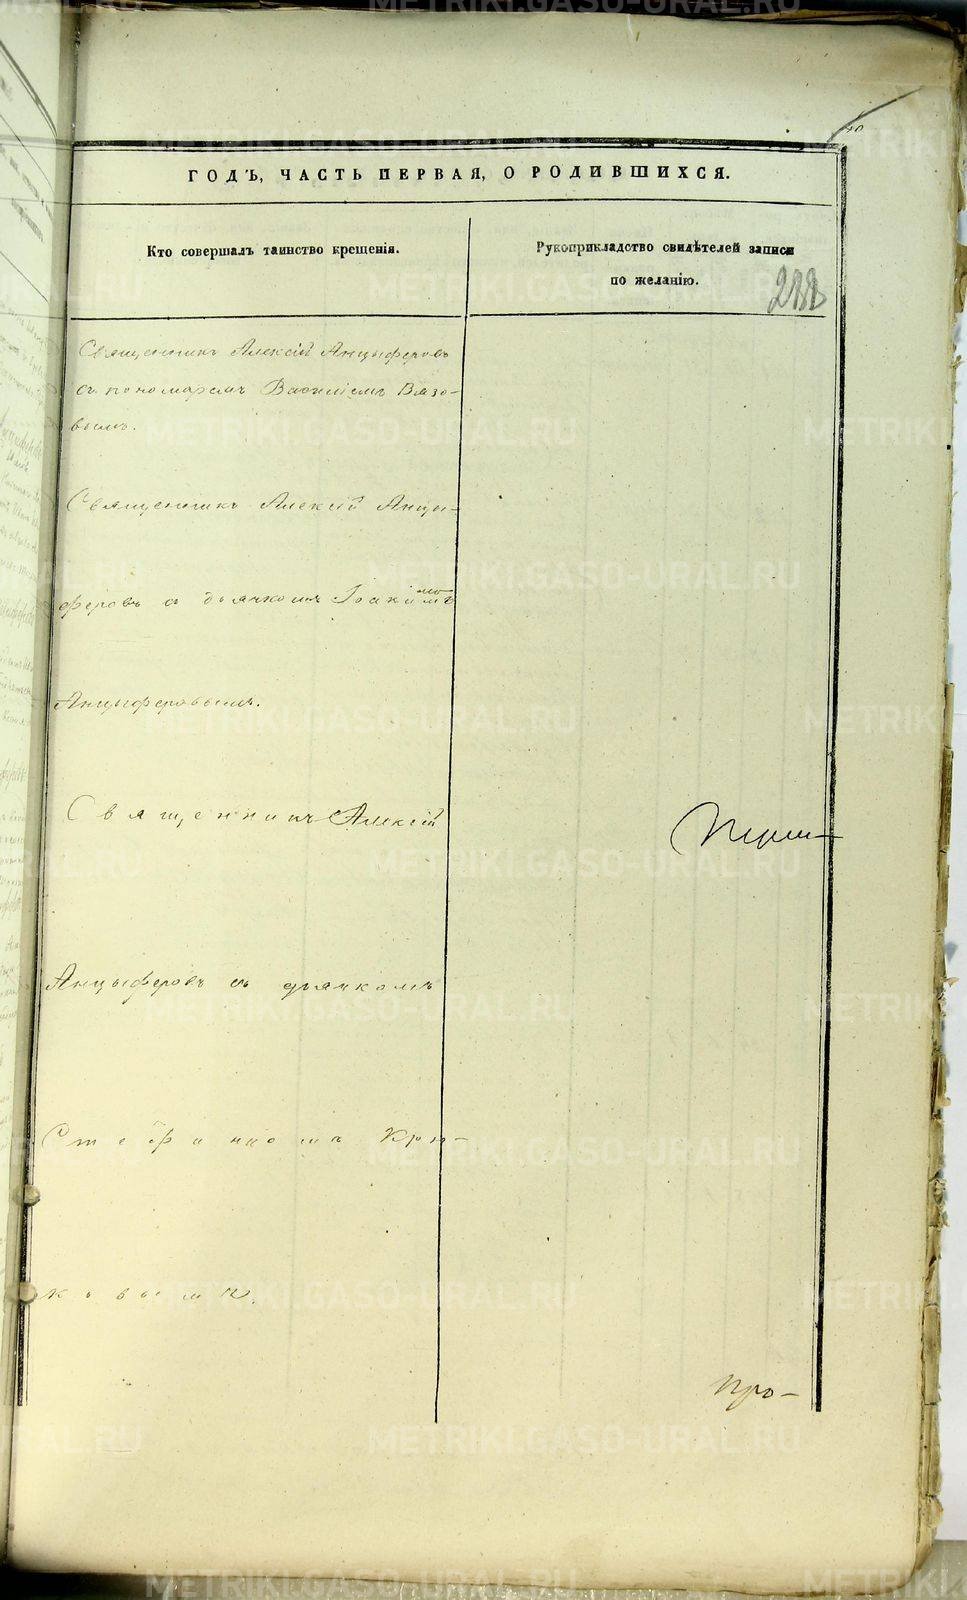 ГОДЪ, ЧАСТЬ ПЕРВАЯ, О РОДИВШИХСЯ.
Кто совершалъ таинство крещенія.
Рукоприкладство свидѣтелей записи
по желанію.
288
Священникъ Алексій Анцыферовъ
съ пономаремъ Василіемъ Вязо-
вымъ.
Священникъ Алексій Анцы-
феровъ съ дьячкомъ
Анцыферовымъ.
Священникъ Алексій
Анцыферовъ съ дьячкомъ
Стефаномъ Крю-
ковымъ.
Про-
METRIKI.GASO-URAL.RU